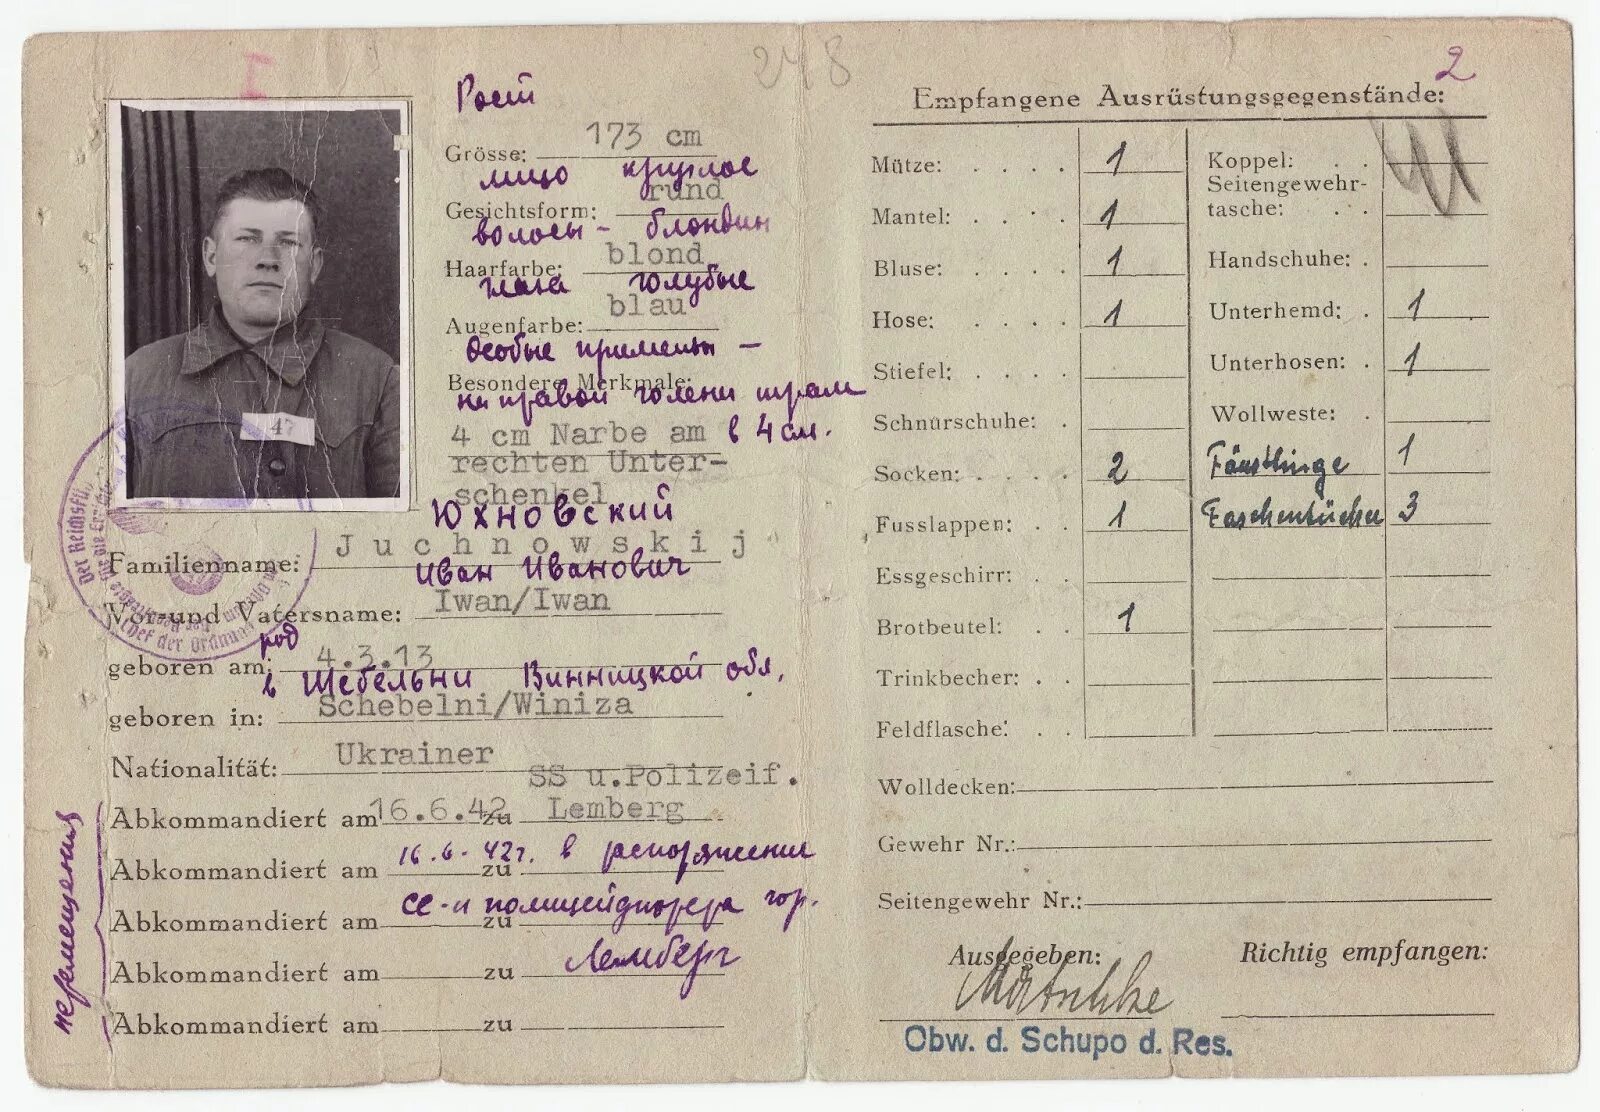 I
248
Рост
Grösse: 173 cm
лицо круглое
Gesichtsform: rund
волосы - блондин
Haarfarbe: blond
глаза голубые
Augenfarbe: blau
Особые приметы -
Besondere Merkmale:
на правой голени шрам
4 cm Narbe am в 4 см.
rechten Unter-
schenkel
47
Юхновский
Familienname: Juchnowskij
Иван Иванович
Vor-und Vatersname: Iwan/Iwan
род
geboren am: 4.3.13
в Шебельни Винницкой обл.
geboren in: Schebelni/Winiza
Nationalität: Ukrainer
SS u.Polizeif.
Abkommandiert am 16.6.42 zu Lemberg
Abkommandiert am 16.6.42г. zu в распоряжение
Abkommandiert am СС-и полицейфюрера zu гор.
Abkommandiert am zu Лемберг
Abkommandiert am zu
перемещения
Der Reichsfü
Chef der Ordnung
2
Empfangene Ausrüstungsgegenstände:
Mütze: . . . . 1
Mantel: . . . . 1
Bluse: . . . . 1
Hose: . . . . 1
Stiefel: . . . .
Schnürschuhe: .
Socken: . . . . 2
Fusslappen: . . 1
Essgeschirr: . .
Brotbeutel: . . 1
Trinkbecher: . .
Feldflasche: . .
Koppel: . .
Seitengewehr-
tasche: . .
Handschuhe: .
Unterhemd: . 1
Unterhosen: . 1
Wollweste: .
Fäustlinge 1
Taschentücher 3
Wolldecken:
Gewehr Nr.:
Seitengewehr Nr.:
Ausgegeben:
Richtig empfangen:
Obw. d. Schupo d. Res.